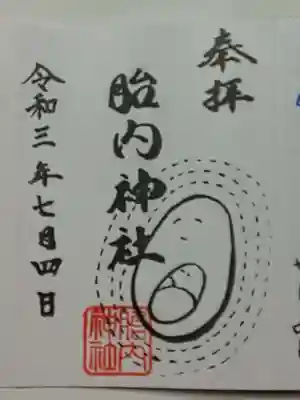 奉拝
胎内神社
令和三年七月四日
胎内
神社